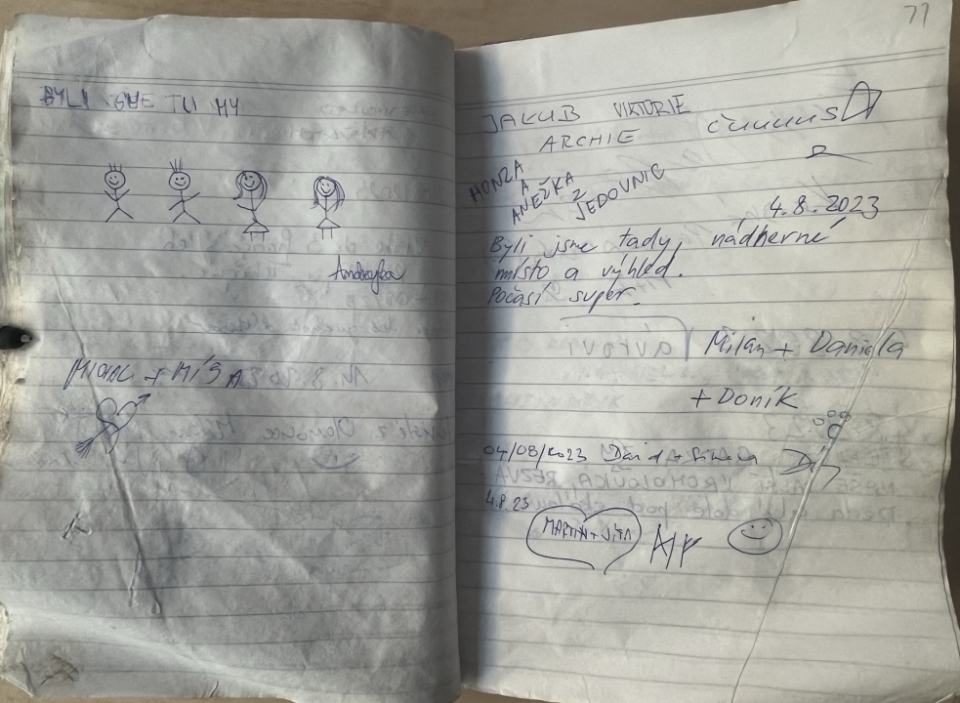 BYLI SME TU MY
Andrejka
MICHAL + MÍŠA
77
JAKUB VIKTORIE
ARCHIE
HONZA
A
ANEŽKA
Z
JEDOVNIC
4.8.2023
Byli jsme tady, nádherné
místo a výhled.
Počasí super.
Milan + Daniela
+ Doník
04/08/2023 David + Simona
4.8.23
MARTINA + VÍŤA